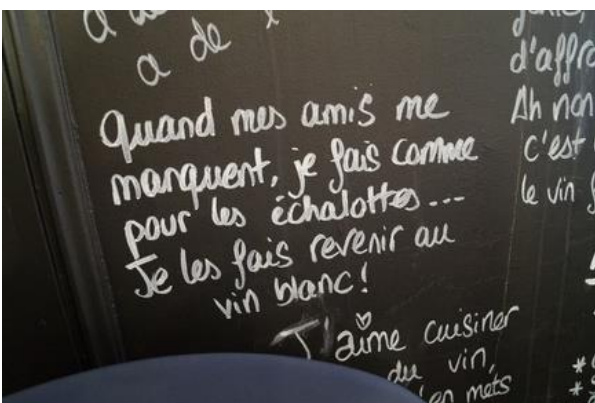 a de
Quand mes amis me
manquent, je fais comme
pour les échalottes...
Je les fais revenir au
vin blanc!
J'aime cuisiner
du vin,
mets
d'affro
Ah non
c'est
le vin